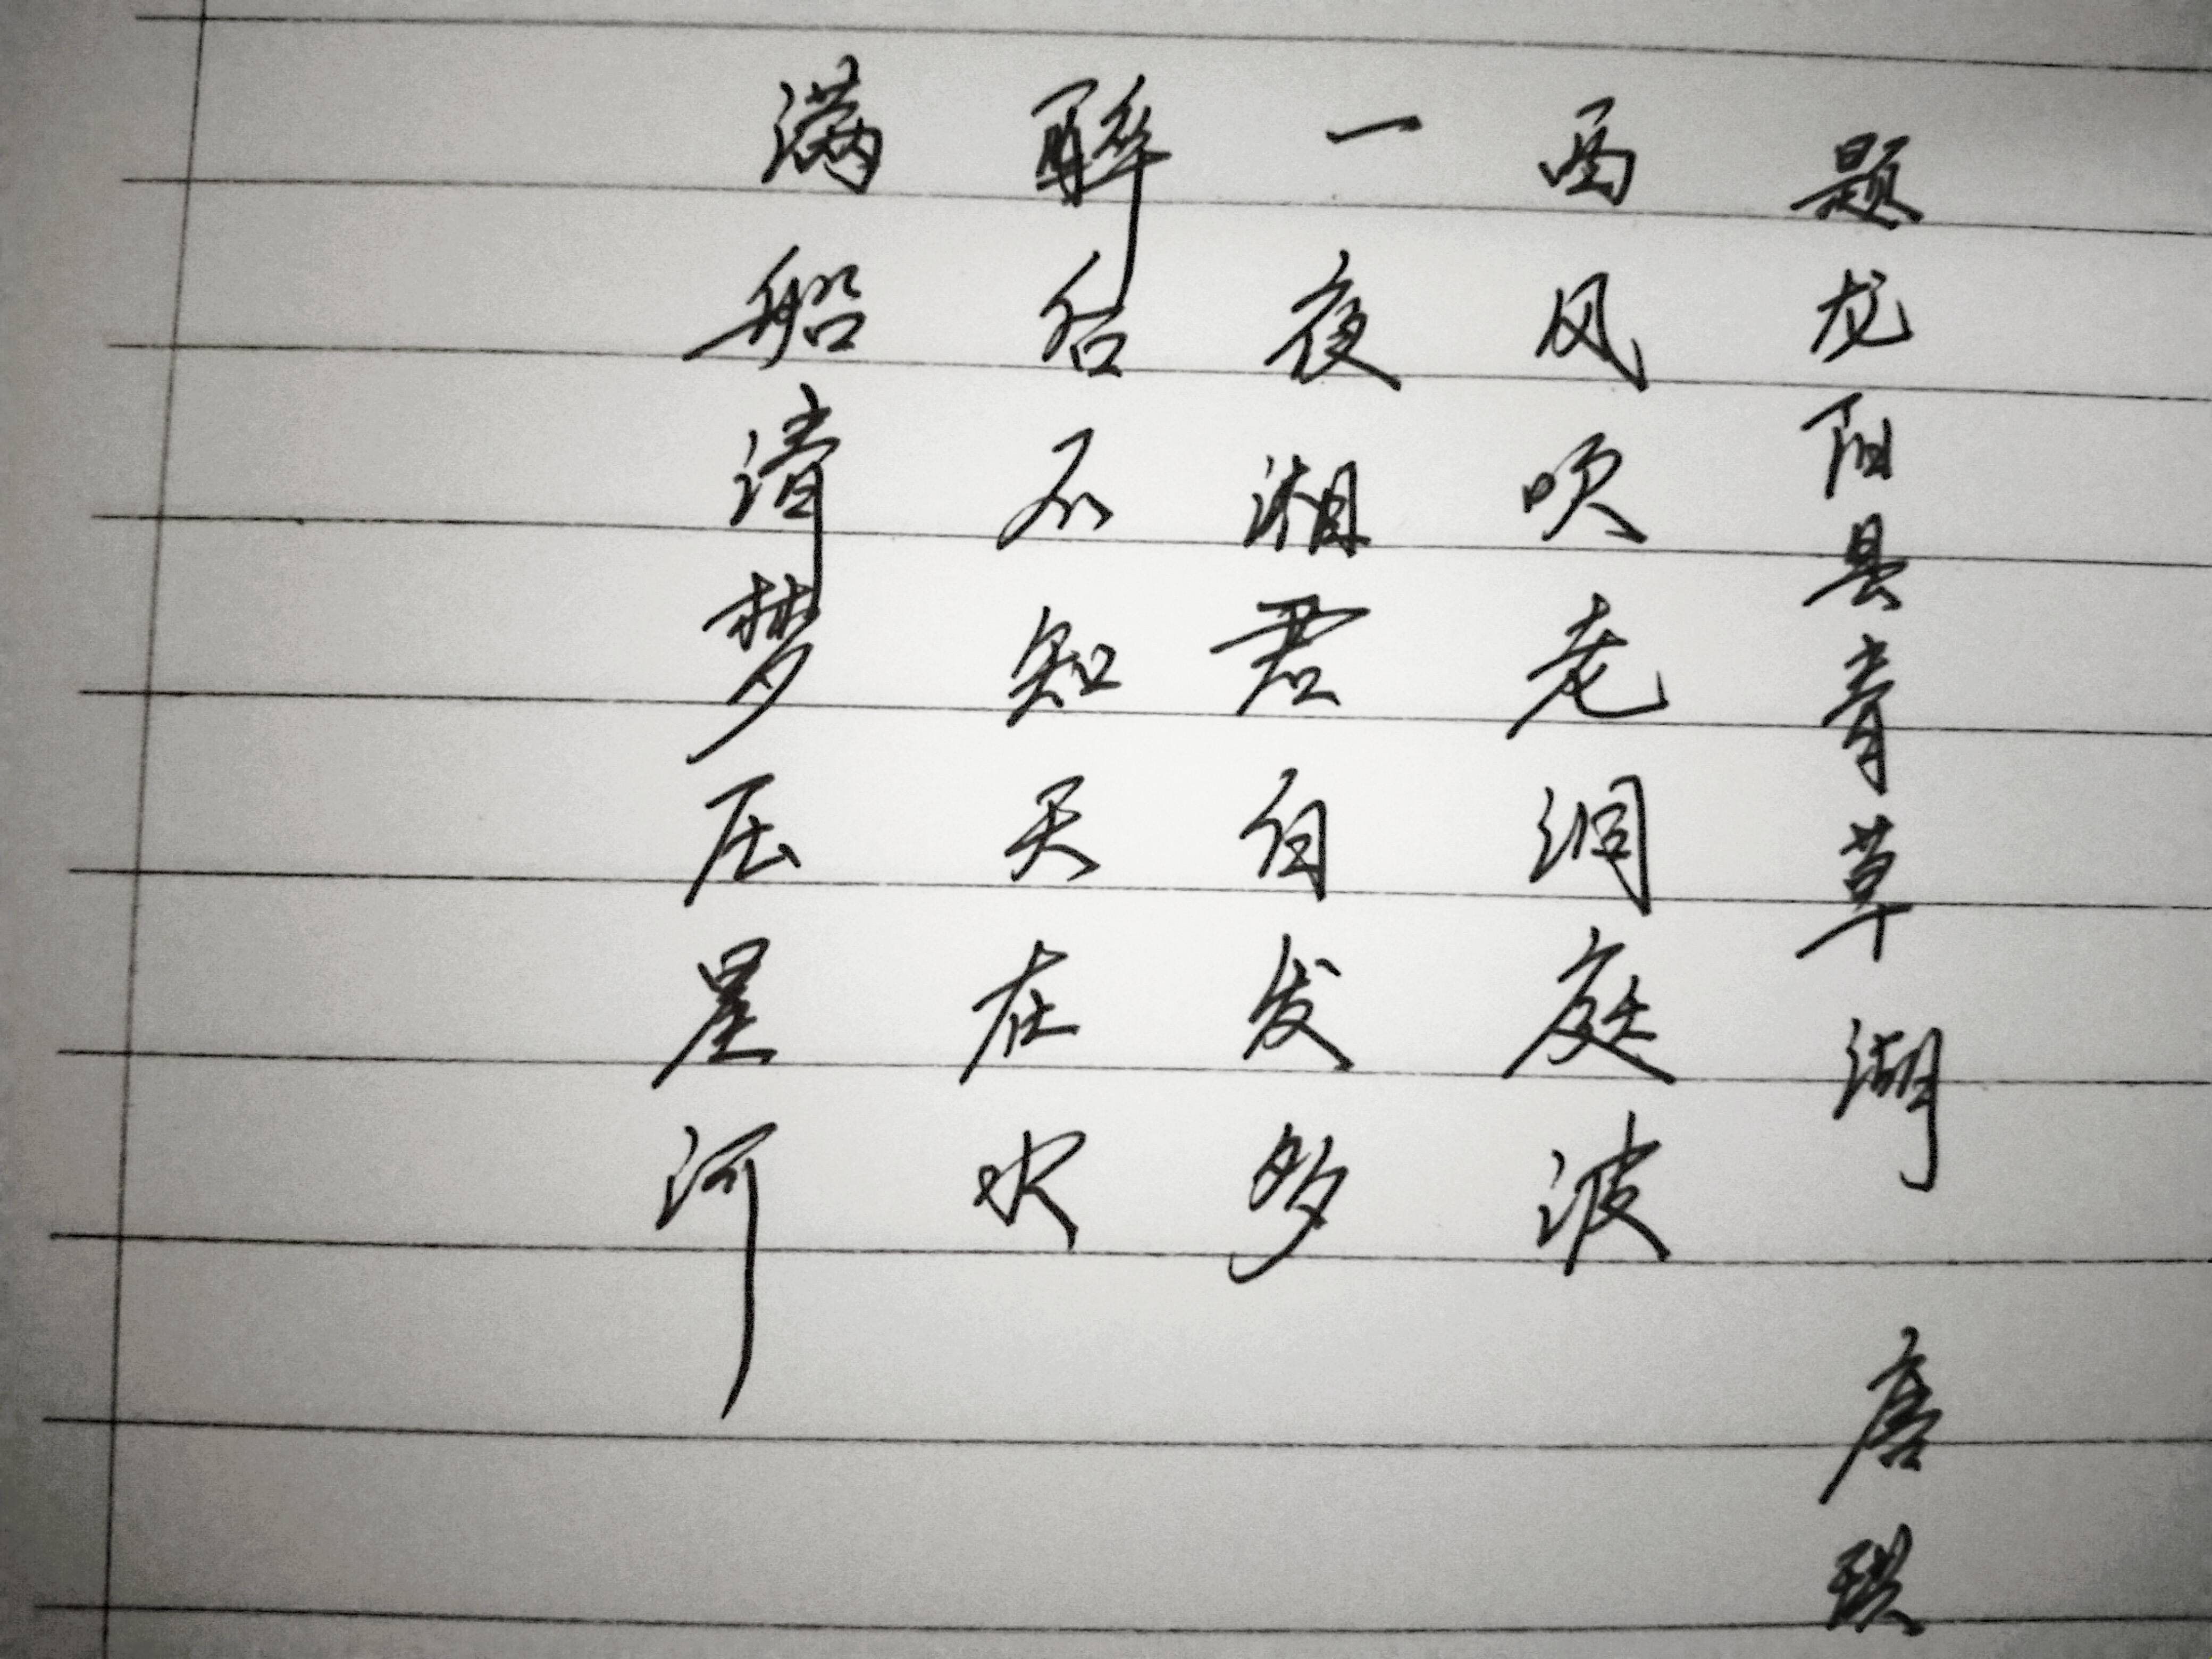 题龙阳县青草湖 唐珙
西风吹老洞庭波
一夜湘君白发多
醉后不知天在水
满船清梦压星河